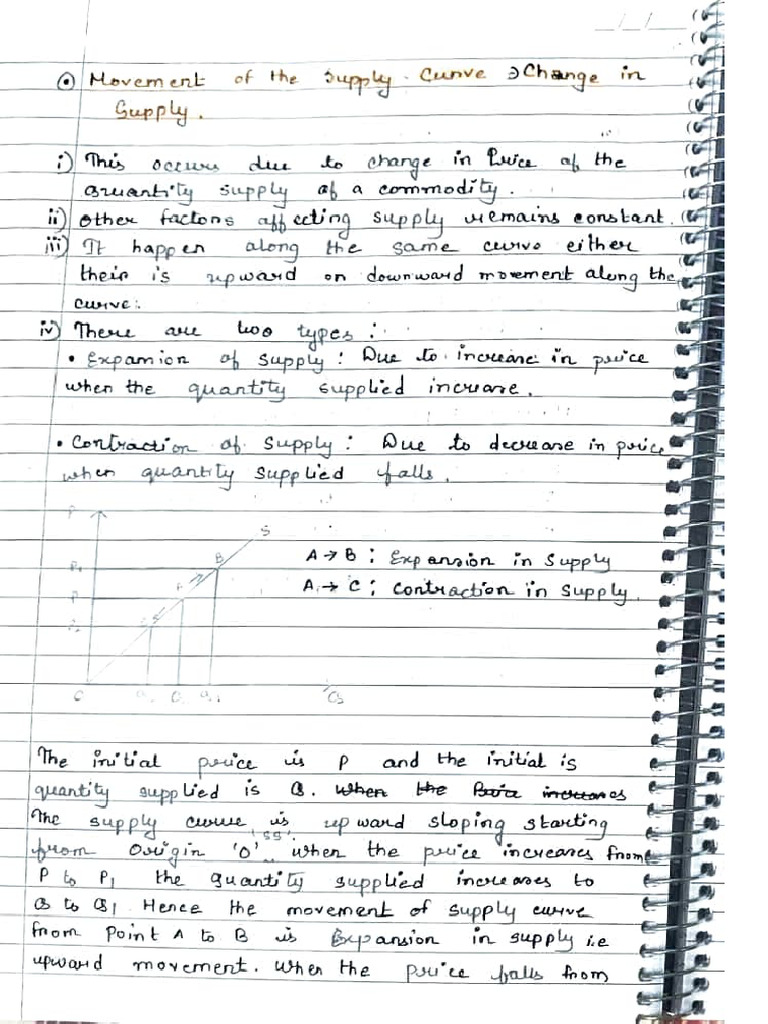 Movement of the Supply Curve ⇒ Change in
Supply.
i) This occurs due to change in Price of the
Quantity supply of a commodity.
ii) Other factors affecting supply remains constant.
iii) It happen along the same curve either
their is upward or downward movement along the
curve.
iv) There are two types :
• Expansion of supply : Due to increase in price
when the quantity supplied increase.
• Contraction of supply : Due to decrease in price
when quantity supplied falls.
P
S
B
A → B : Expansion in Supply
P1
A
A → C : Contraction in Supply.
P
P2
C
O
Q
Q1
Q
The initial price is P and the initial is
quantity supplied is Q. when the Price increases
The supply curve 'SS' is upward sloping starting
from Origin 'O' when the price increases from
P to P1 the quantity supplied increases to
Q to Q1. Hence the movement of supply curve
from Point A to B is Expansion in supply i.e
upward movement. When the price falls from